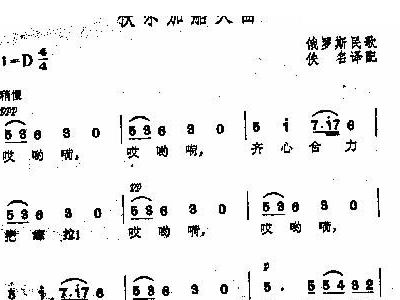 俄罗斯民歌
1=D 4/4
佚名译配
稍慢
ppp
5 3 6 3 0 | 5 3 6 3 0 | 5 i 7·i7 6
哎哟嗬, 哎哟嗬, 齐心合力
pp
5 3 6 3 0 | 5 3 6 3 0 | 5 3 6 3 0 |
把纤拉! 哎哟嗬, 哎哟嗬,
p
5 i 7·i7 6 | 5 3 6 3 0 | 5· 5 5 4 3 2